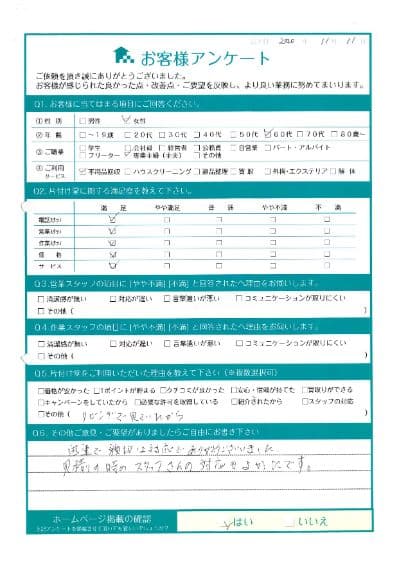 2020 11 11
お客様アンケート
ご依頼を頂き誠にありがとうございました。
お客様が感じられた良かった点・改善点・ご要望を反映し、より良い業務に努めてまいります。
Q1. お客様に当てはまる項目にご回答ください。
①性別 □男性 ☑女性
②年齢 □～19歳 □20代 □30代 □40代 □50代 ☑60代 □70代 □80歳～
③ご職業 □学生 □会社員 □経営者 □公務員 □自営業 □パート・アルバイト
□フリーター ☑専業主婦(主夫) □その他
④ご利用サービス ☑不用品回収 □ハウスクリーニング □遺品整理 □買取 □外構・エクステリア □解体
Q2. 片付け堂に関する満足度を教えて下さい。
満足 やや満足 普通 やや不満 不満
電話スタッフ ☑ □ □ □ □
営業スタッフ ☑ □ □ □ □
作業スタッフ ☑ □ □ □ □
価格 ☑ □ □ □ □
サービス ☑ □ □ □ □
Q3. 営業スタッフの項目に[やや不満][不満]と回答された方へ理由をお伺いします。
□清潔感が無い □対応が遅い □言葉遣いが悪い □コミュニケーションが取りにくい
□その他( )
Q4. 作業スタッフの項目に[やや不満][不満]と回答された方へ理由をお伺いします。
□清潔感が無い □対応が遅い □言葉遣いが悪い □コミュニケーションが取りにくい
□その他( )
Q5. 片付け堂をご利用いただいた理由を教えて下さい(※複数選択可)
□価格が安かった □Tポイントが貯まる □クチコミが良かった □安心・信頼が持てた □買取りができる
□キャンペーンをしていたから □必要な許可を取得している □紹介されたから □スタッフの対応
□その他( リビングで見ていたから )
Q6. その他ご意見・ご要望がありましたらご自由にお書き下さい
迅速で親切な対応でありがとうございました
見積りの時のスタッフさんの対応もよかったです。
ホームページ掲載の確認
☑はい □いいえ